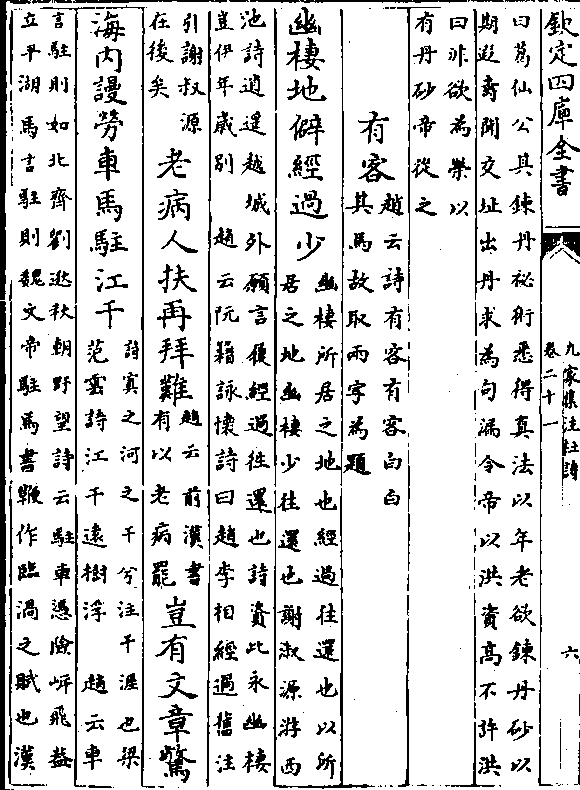 欽定四庫全書
九家集注杜詩
卷二十一
六
曰葛仙公其鍊丹祕術悉得真法以年老欲鍊丹砂以
期遐壽聞交址出丹求為句漏令帝以洪資高不許洪
曰非欲為榮以
有丹砂帝從之
有客
趙云詩有客有客白白
其馬故取兩字為題
幽棲地僻經過少
幽棲所居之地也經過往還也以所
居之地幽棲少往還也謝叔源游西
池詩逍遥越城外願言屢經過徃還也詩資此永幽棲
豈伊年嵗别
趙云阮籍詠懐詩曰趙李相經過舊注
引謝叔源
在後矣
老病人扶再拜難
趙云前漢書
有以老病罷
豈有文章驚
海内謾勞車馬駐江干
詩寘之河之干兮注干涯也梁
范雲詩江干逺樹浮
趙云車
言駐則如北齊劉逖秋朝野望詩云駐車憑險㟁飛葢
立平湖馬言駐則魏文帝駐馬書鞭作臨渦之賦也漢